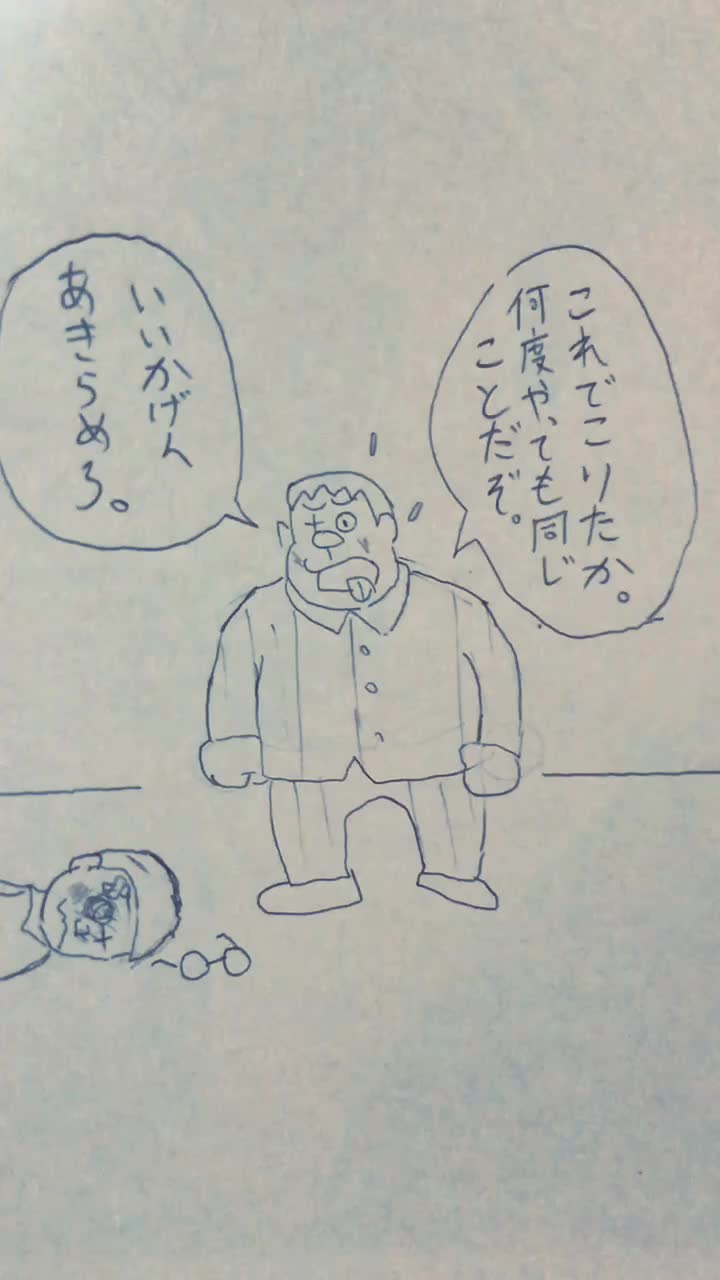 これでこりたか。
何度やっても同じ
ことだぞ。
いいかげん
あきらめろ。